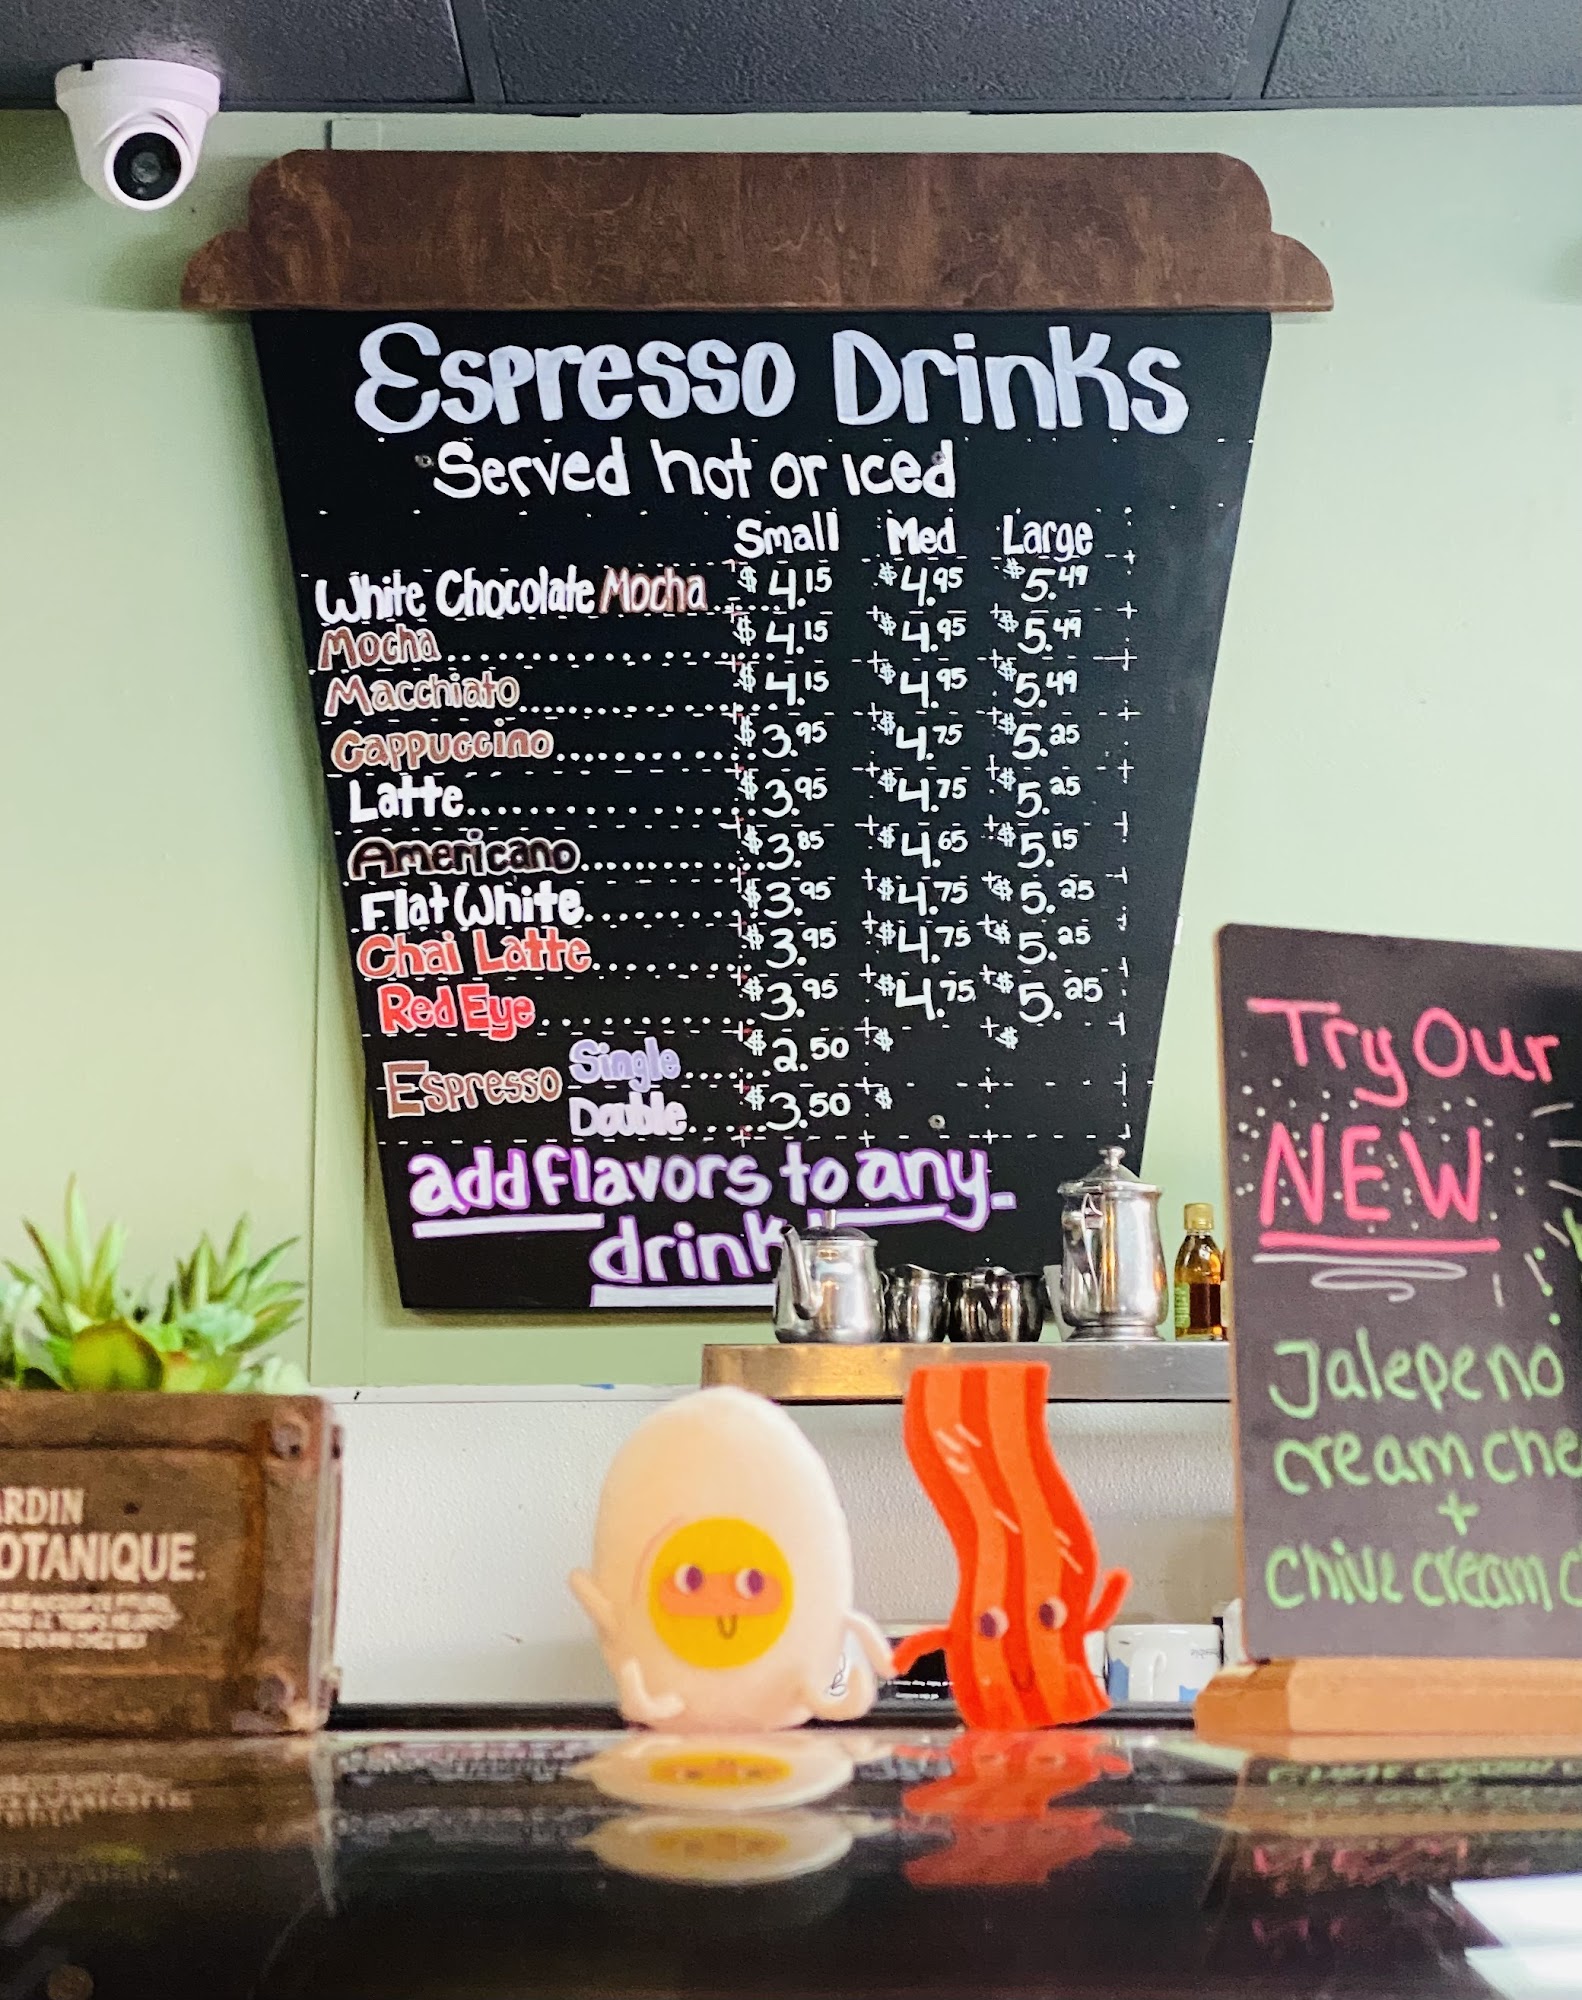 Espresso Drinks
Served hot or iced
Small Med Large
White Chocolate Mocha... $4.15 $4.95 $5.49
Mocha.................... $4.15 $4.95 $5.49
Macchiato................ $4.15 $4.95 $5.49
Cappuccino............ $3.95 $4.75 $5.25
Latte.................. $3.95 $4.75 $5.25
Americano............ $3.85 $4.65 $5.15
Flat White........... $3.95 $4.75 $5.25
Chai Latte........... $3.95 $4.75 $5.25
Red Eye............. $3.95 $4.75 $5.25
Espresso Single...... $2.50 $ $
Double..... $3.50 $
add flavors to any
drink
Try Our
NEW
Jalepeno
cream che
+
Chive cream c
ARDIN
OTANIQUE.